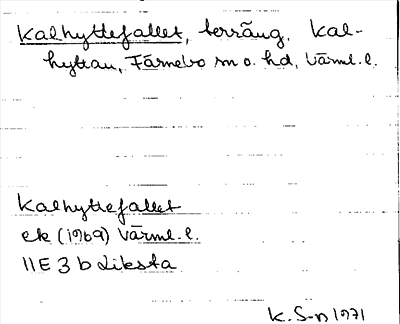 Kalhyttefallet, terräng, Kal-
hyttan, Färnebo sn o. hd, Värml. l.
Kalhyttefallet
ek (1969) Värml. l.
11E 3 b Liksta
K. S-n 1971